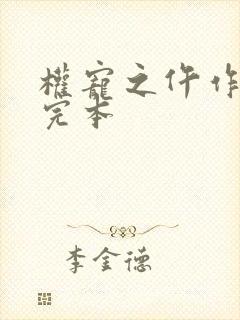 權寵之仵作
完本
李金德